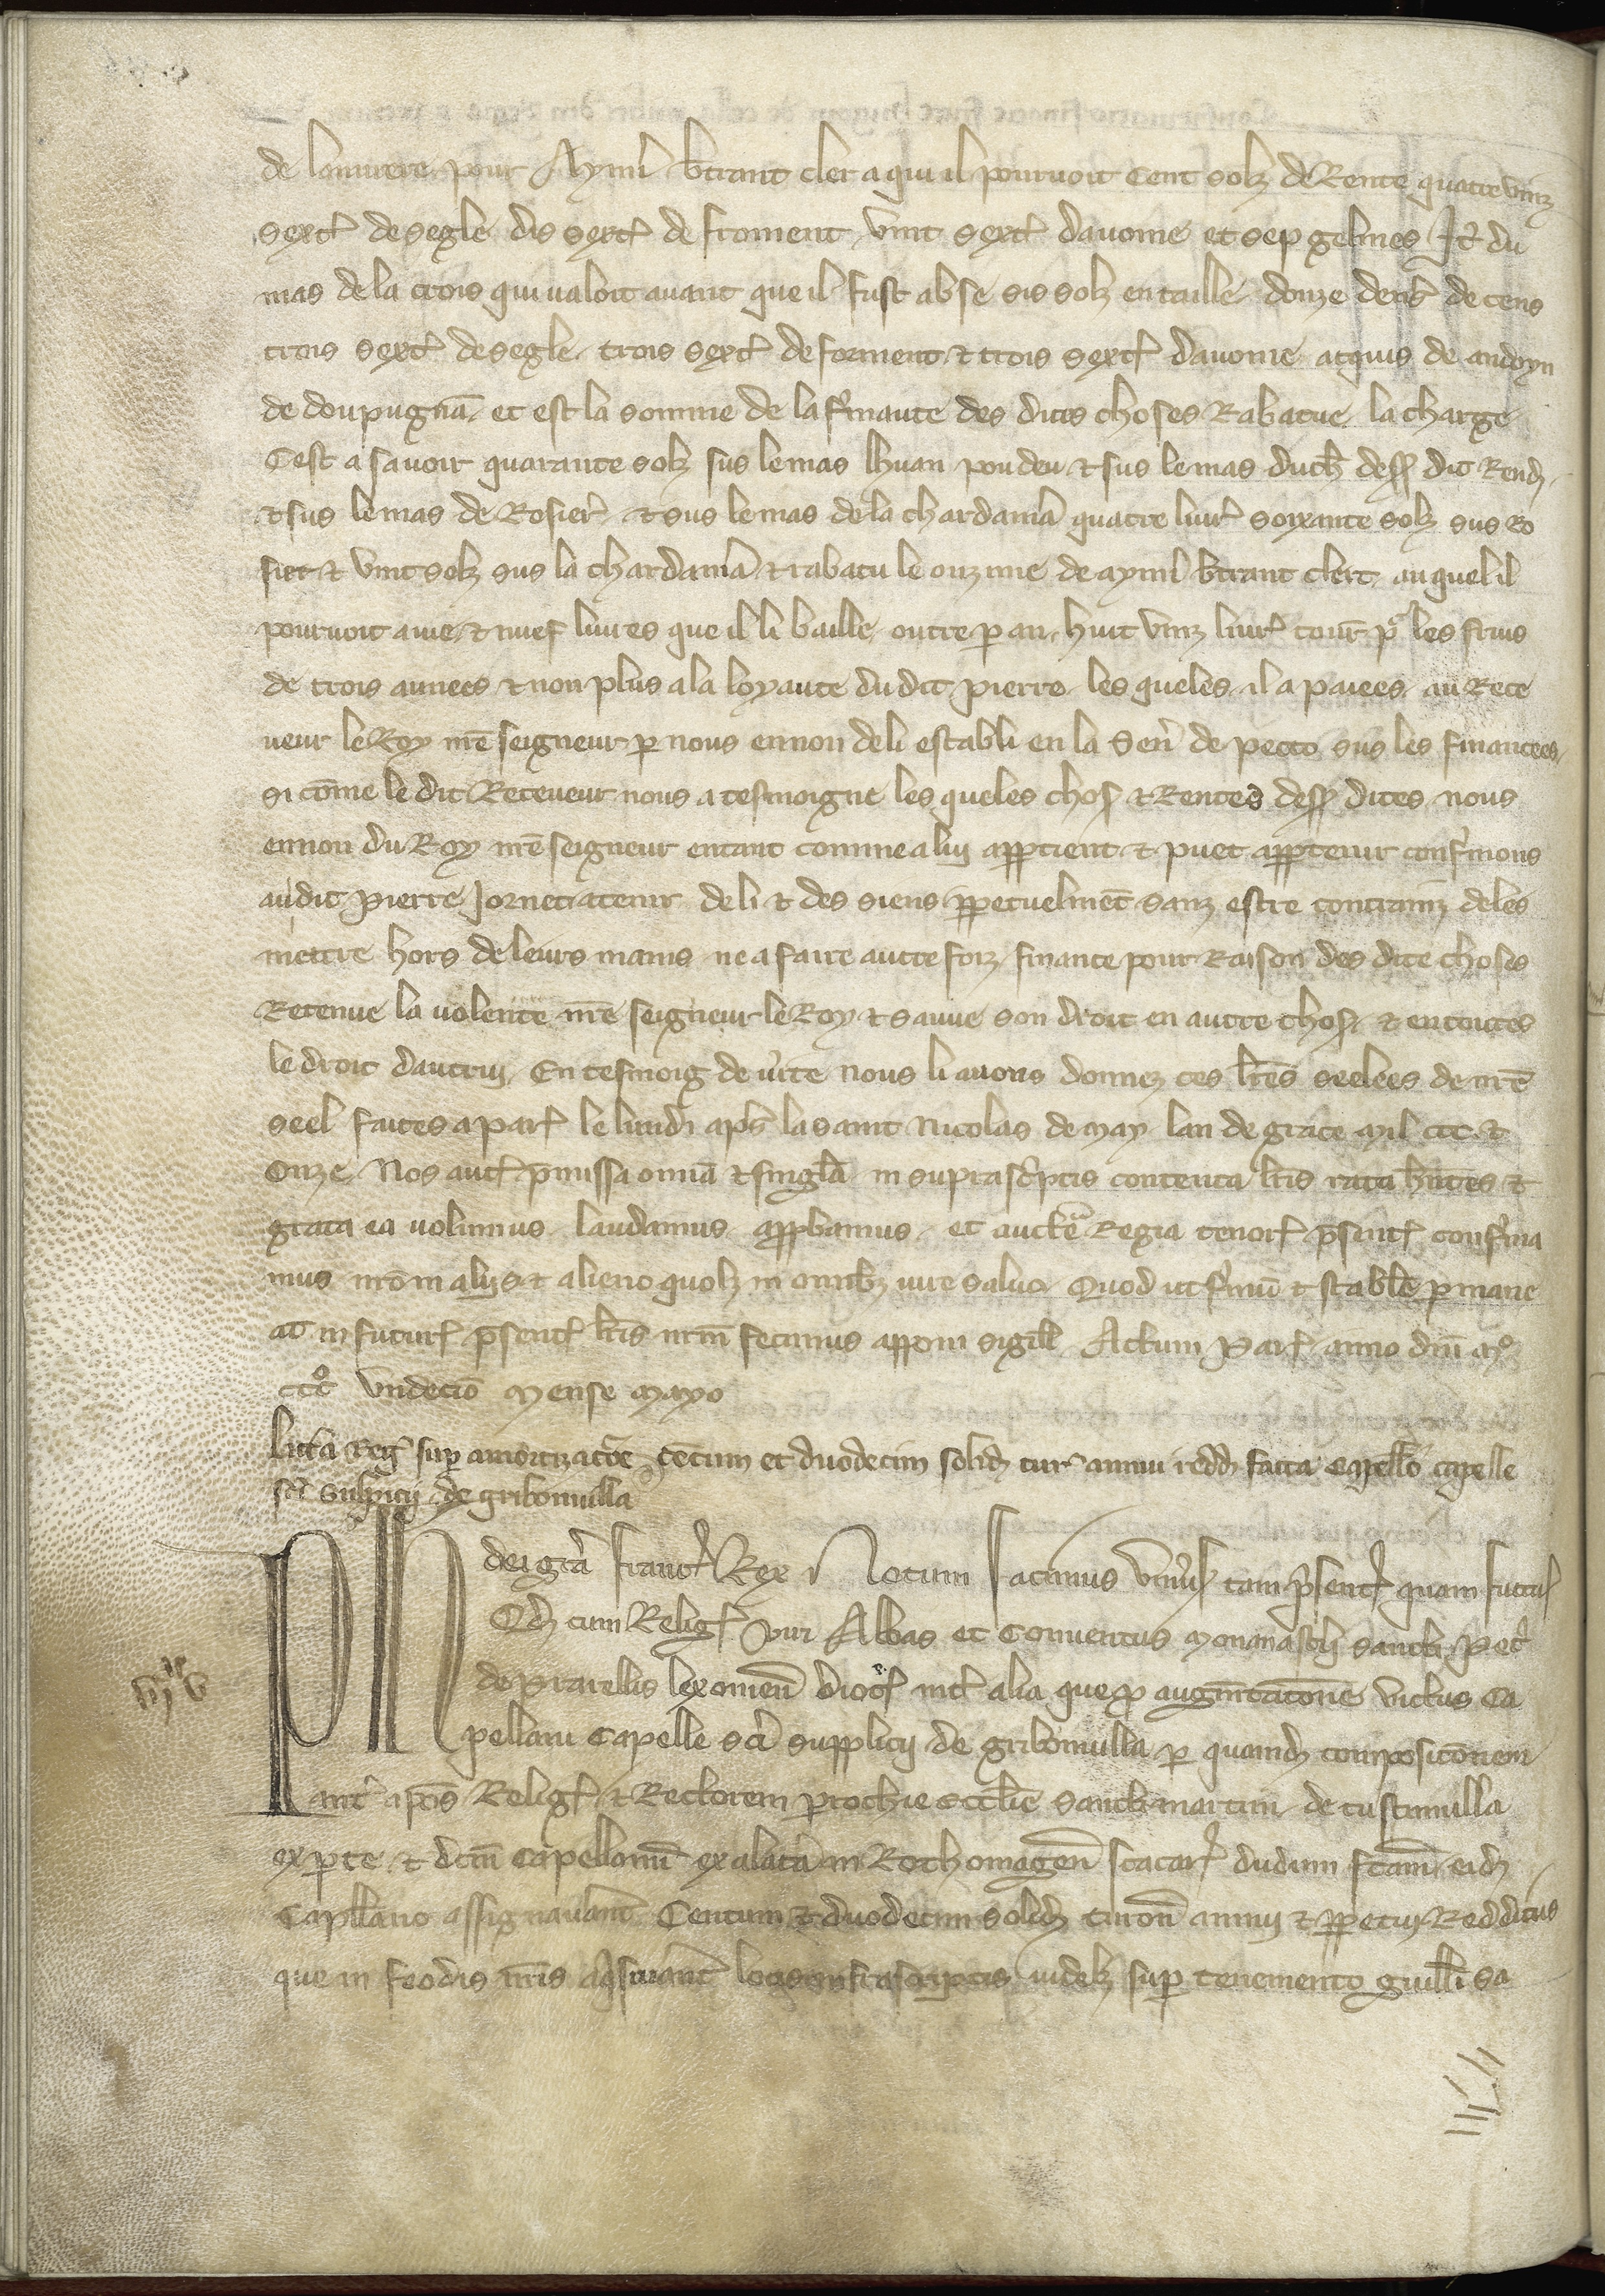 de louurere pour Aymī btrant cler a qui il pouruoit Cent solz de Rente quatre vinz
sext̾ de segle dis sext̾ de froment, vint sext̾ dauoine et sep gelines Jt̄ du
mas de la crois qui ualoit auant que il fust abse sis solz en taille donze den̄s de cens
trois sext̾ de segle, trois sext̾ de forment ⁊ trois sext̾ dauoine acquis de audoyn
de doupugnā, et est la somme de la finance des dites choses Rabatue la charge
Cest a sauoir quarante solz sus le mas lhuan poudeu ⁊ sus le mas duch̄ dess̄ dit Rend̄,
⁊ sus le mas de Rosier̄ ⁊ sus le mas de la chardaniā quatre liur̄ soixante solz sus Ro
sier ⁊ vint solz sus la chardaniā ⁊ rabatu le onzime de aymī btrant clerc auquel il
pouruoit a uie, ⁊ nuef liures que il li baille outre p an, huit vinz liur̄ tour̄ pͬ les fruis
de trois annees ⁊ non plus a la loyaute du dit pierre les queles il a paiees au Rece
ueur le Roy nr̄e seigneur p nous en non de li establi en la Sen̄ de pecto sus les financees,
si cōme le dit Receueur nous a tesmoigne les queles chos̄ ⁊ Rentes dess̄ dites nous
en non du Roy nr̄e seigneur en tant comme a lui apptient ⁊ puet apptenir confmons
au dit pierre Jornet a tenir de li ⁊ des siens ppetuelmēt sanz estre contrainz de les
mettre hors de leurs mains ne a faire autre foiz finance pour Raison des dite choses
Retenue la uolente nr̄e seigneur le Roy ⁊ sauue son droit en autre chos̄ ⁊ en toutes
le droit dautrui, En tesmoig de ūite nous li auons donnez ces lr̄es seelees de nr̄e
seel faites a par̄ le lundi ap̄s la saint Nicolas de may lan de grace mil ccc ⁊
Onze Nos aut̄ p̄missa om̄ia ⁊ singl̄a in suprasc̄ptis contenta lr̄is rata hn̄tes ⁊
grata ea uolumus laudamus appbamus et auctē Regia tenor̄ p̄sent̄ confma
mus nr̄o in aliis ⁊ alieno quolz in omībz iure saluo Quod ut fmū ⁊ stabl̄e pmane
at in futur̄ p̄sent̄ lr̄is nr̄m fecimus apponi sigill̄ Actum Par̄ anno dn̄i mͦ
cccͦ vndecīo mense mayo
Litt̄a reḡ sup amortizac̄oe centum et duodecim solid̄ tur̄ annui redd̄ facta Capell̄o capelle
sc̄i Sulpicii de gribouuilla
Ph dei gr̄a franc̄ Rex Notum facimus Vniūs̄ tam p̄sent̄ quam futur̄
Qd̄ cum Reliḡ viri Abbas et Conuentus monast̄ii sancti Pet̄
de Pratellis lexouien̄ dioc̄ int̄ alia que p̄ augm̄tac̄one victus Ca
pellani Capelle sc̄i supplicij de gribouuilla p quamd̄ composic̄onem
int̄ ip̄os Reliḡ ⁊ Rectorem prochie eccl̄ie sancti martini de tustiniuilla
ex pte ⁊ dc̄m Capellanū ex alata in Rothomagen̄ scacar̄ dudum fc̄am eid̄
Capll̄ano assignauāt Centum ⁊ duodecim solid̄ turon̄ annui ⁊ ppetui Redditus
que in feodis nr̄is aqsiuāt locis infrascriptis uidelz sup tenemento guill̄i sa